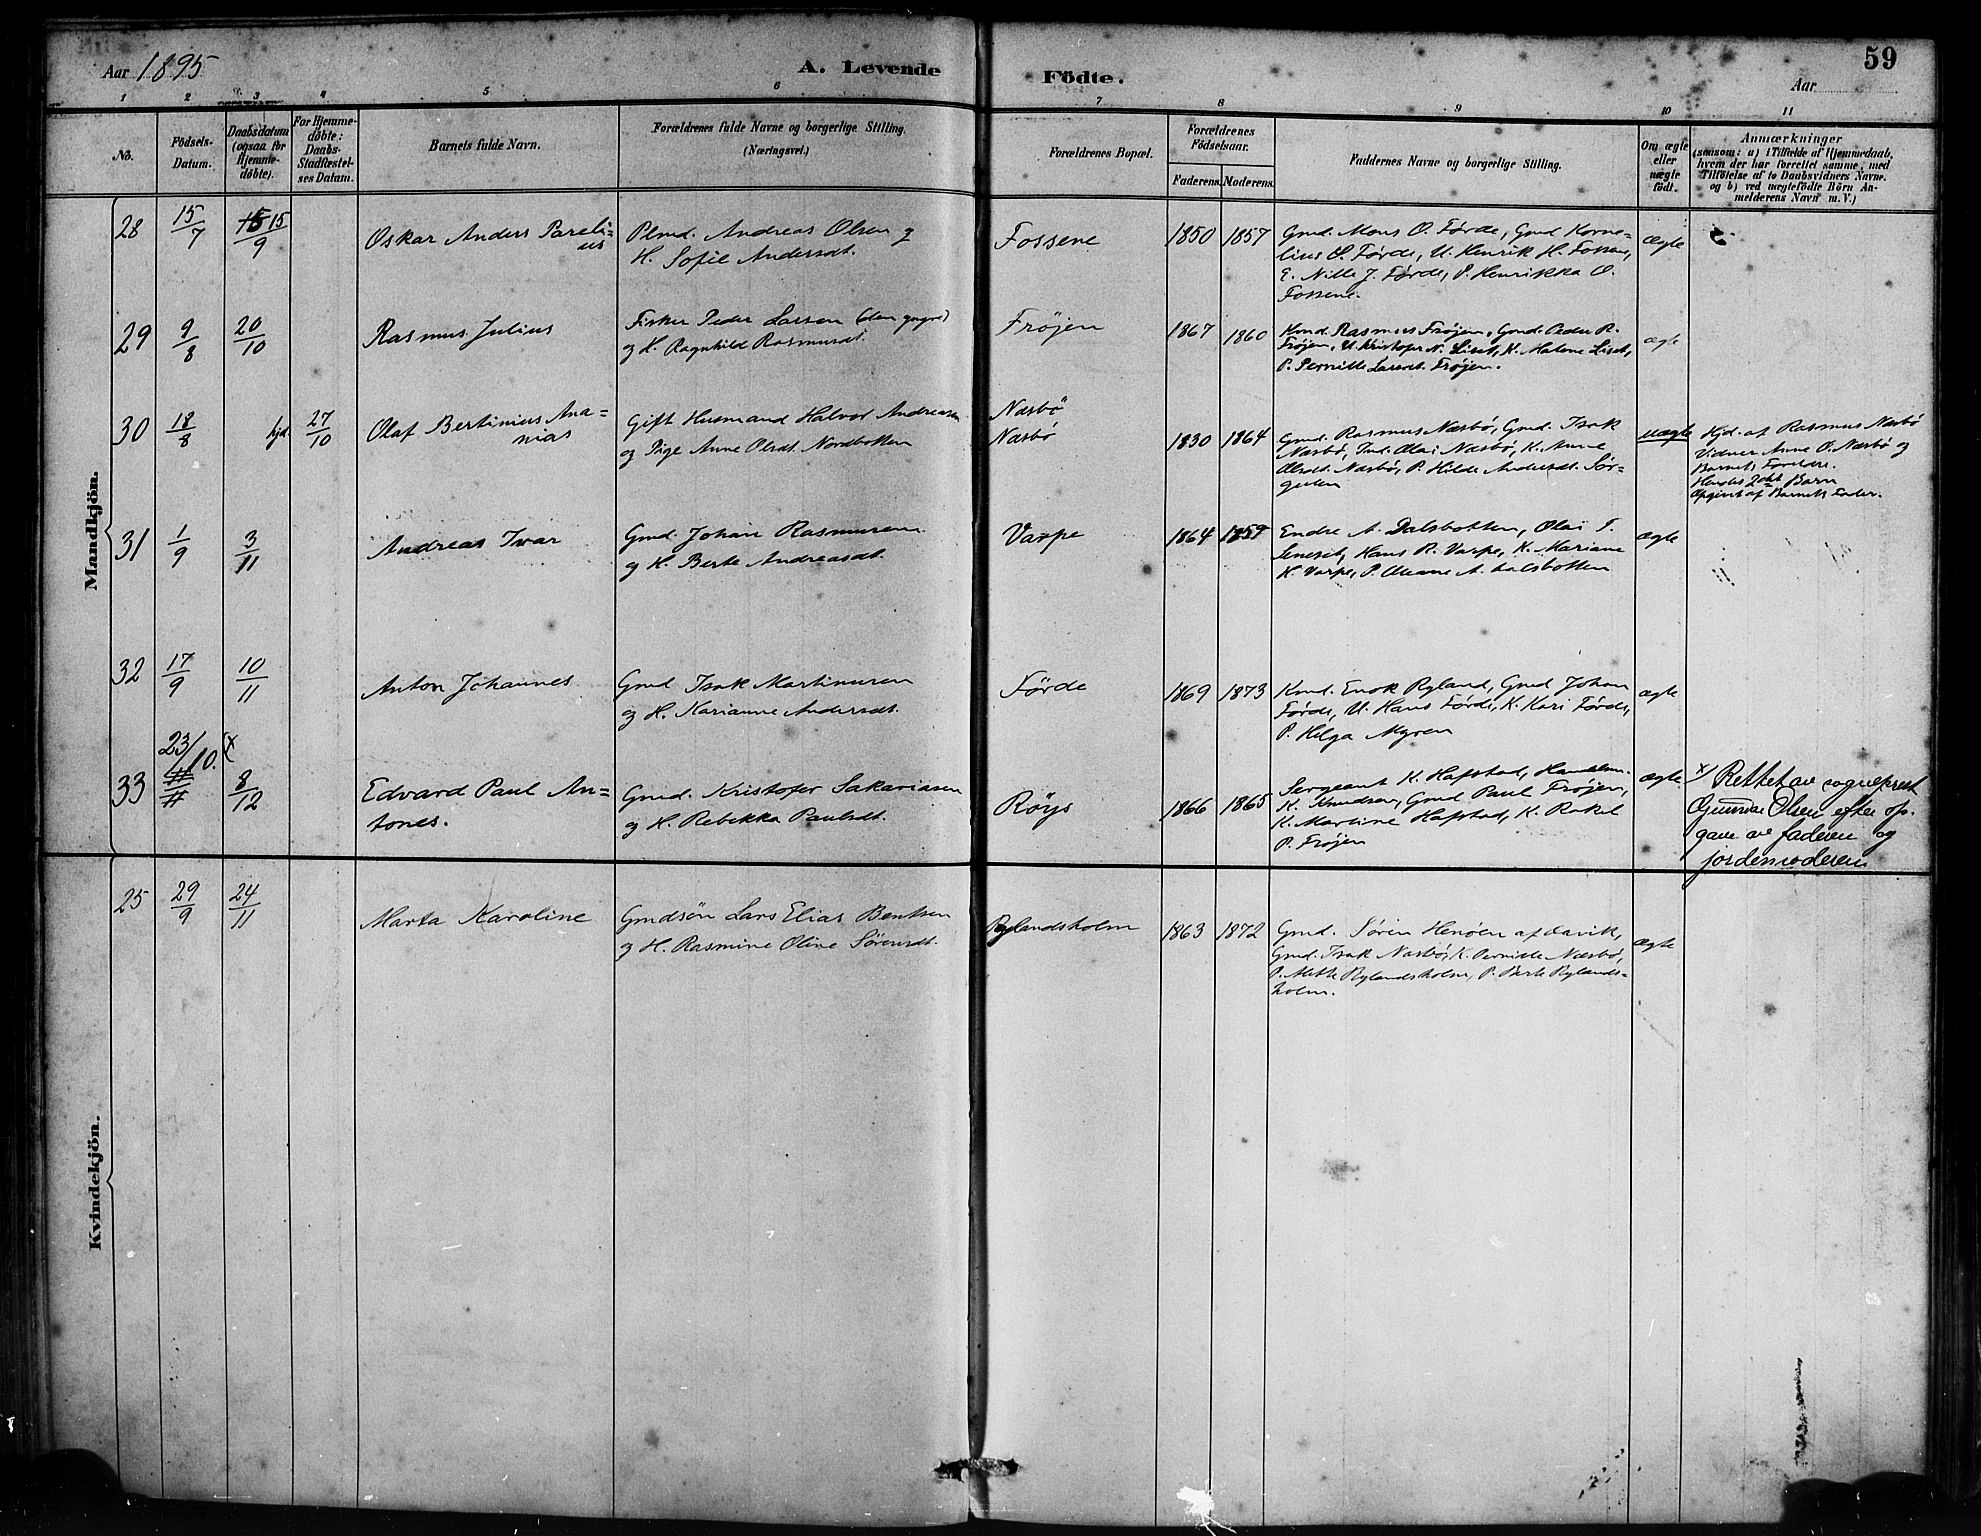 Aar 1895
A. Levende Födte.
59
Aar
1 2 3 4 5 6 7 8 9 10 11
No.
Födsels-
Datum.
Daabsdatum
(ogsaa for
Hjemme-
döbte).
For Hjemme-
döbte:
Daabs-
Stadfæstel-
ses Datum.
Barnets fulde Navn.
Forældrenes fulde Navne og borgerlige Stilling.
(Næringsvei.)
Forældrenes Bopæl.
Forældrenes
Födselsaar.
Faderens. Moderens.
Faddernes Navne og borgerlige Stilling.
Om ægte
eller
uægte
födt.
Anmærkninger
(saasom: a) i Tilfælde af Hjemmedaab,
hvem der har forrettet samme, med
Tilföielse af to Daabsvidners Navne.
og b) ved uægtefödte Börn An-
melderens Navn m. V.)
Mandkjön.
28 15/7 15/9 Oskar Anders Pareli=
us
Plmd. Andreas Olsen og
H. Sofie Andersdt.
Fossene 1850 1857
Gmd. Mons O. Førde, Gmd Korne-
lius O. Førde, U. Henrik H. Fossene,
E. Nille J. Førde, P. Henrikka O.
Fossene.
ægte
29 9/8 20/10 Rasmus Julius
Fisker Peder Larsen (den yngre)
og H. Ragnhild Rasmusdt.
Frøjen 1867 1860
Kmd. Rasmus Frøjen, Gmd. Peder R.
Frøjen, U. Kristofer N. Liset, K. Malene Liset,
P. Pernille Larsdt. Frøjen.
ægte
30 18/8 hjd. 27/10 Olaf Bertinius Ana=
nias
Gift Husmand Halvor Andreasen
og Pige Anne Olsdt. Nordbotten
Næsbö
Næsbö 1830 1864
Gmd. Rasmus Næsbö, Gmd. Isak
Næsbö, Ind. Olai Næsbö, K. Anne
Olsdt. Næsbö, P. Hilde Andersdt. Sör-
gulen
uægte
Hjd. af Rasmus Næsbö
Vidner Anne O. Næsbö og
Barnets Forældre.
Hendes 2det Barn
Opgivet af Barnets Fader.
31 1/9 3/11 Andreas Ivar
Gmd. Johan Rasmusen
og H. Berte Andreasdt.
Varpe 1864 1859
Endre A. Dalsbotten, Olai
Hans R. Varpe, K. Mariane
H. Varpe, P. Oleane A. Dalsbotten
ægte
32 17/9 10/11 Anton Johannes
Gmd Isak Martinusen
og H. Marianne Andersdt.
Førde 1869 1873
Kmd. Enok Ryland, Gmd Johan
Førde, U. Hans Førde, K. Kari Førde,
P. Helga Myren
ægte
33 23/10. (x 8/12 Edvard Paul An=
tones.
Gmd. Kristofer Sakariasen
og H. Rebekka Paulsdt.
Röys 1866 1865
Sergeant K. Hafstad, Handelsm.
K. Knudsen, Gmd Paul Frøjen,
K. Martine Hafstad, K. Rakel
P. Frøjen
ægte
x) Rettet av sogneprest
Gunnar Olsen efter op-
gave av faderen og
jordemoderen
Kvindekjön.
25 29/9 24/11 Marta Karoline
Gmdsøn Lars Elias Bentsen
og H. Rasmine Oline Sörensdt.
Rylandsholm 1863 1872
Gmd. Sören Henöen af Davik,
Gmd. Isak Næsbö, K. Pernille Næsbö,
P. Mette Rylandsholm, P. Berte Rylands=
holm.
ægte